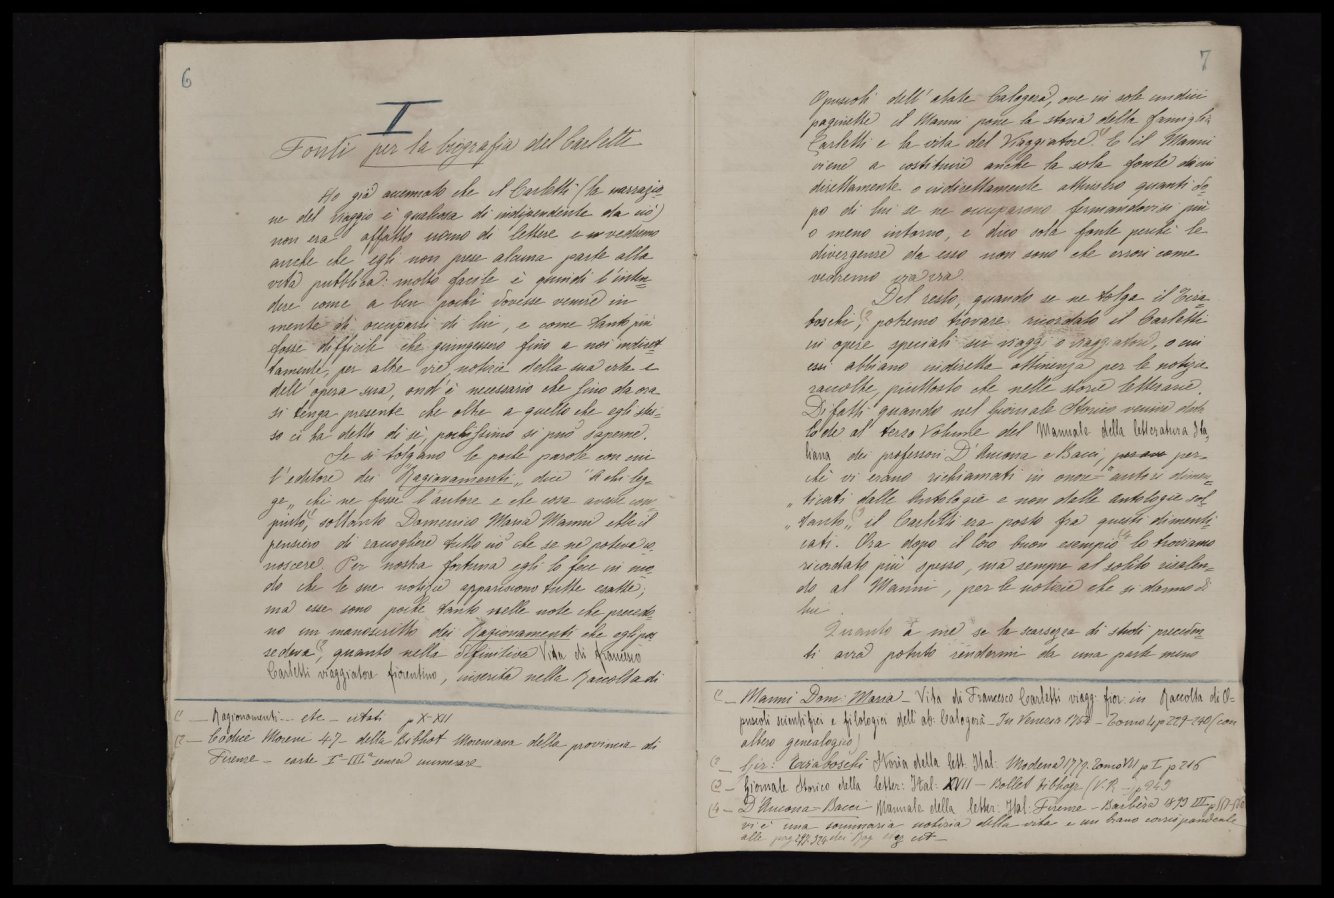 6
II
Fonti per la biografia del Carletti
Ho già accennato che il Carletti (la narrazio=
ne del viaggio è qualcosa di indipendente da ciò)
non era affatto uomo di lettere e vedremo
anche che egli non prese alcuna parte alla
vita pubblica: molto facile è quindi l'inten=
dere come a ben pochi dovesse venire in
mente di occuparsi di lui, e come tanto più
fosse difficile che giungessero fino a noi indiret=
tamente, per altre vie, notizie della sua vita e
dell'opera sua, ond'è necessario che fino da ora
si tenga presente che oltre a quello che egli stes=
so ci ha detto di sè, pochissimo si può saperne.
Se si tolgano le poche parole con cui
l'editore dei "Ragionamenti" dice "a chi leg=
ge" chi ne fosse l'autore e che cosa avesse com
piuto (1, soltanto Domenico Maria Manni ebbe il
pensiero di raccogliere tutto ciò che se ne poteva co
noscere. Per nostra fortuna egli lo fece in mo
do che le sue notizie appariscono tutte esatte;
ma esse sono poche tanto nelle note che precedo=
no un manoscritto dei Ragionamenti che egli pos
sedeva (2, quanto nella definitiva Vita di Francesco
Carletti viaggiatore fiorentino, inserita nella Raccolta di
(1 — Ragionamenti... etc — citati p X-XII
(2 — Codice Moreni 47 — della Bibliot Moreniana della provincia di
Firenze — carte I.a - III.a senza numerare —
7
Opuscoli dell'abate Calogerà, ove in sole undici
paginette il Manni pone la storia della famiglia
Carletti e la vita del Viaggiatore (1. E il Manni
viene a costituire anche la sola fonte da cui
direttamente o indirettamente attinsero quanti do=
po di lui se ne occuparono fermandovisi più
o meno intorno, e dico sola fonte perchè le
divergenze da esso non sono che errori come
vedremo via via.
Del resto, quando se ne tolga il Tira=
boschi, (2 potremo trovare ricordato il Carletti
in opere speciali sui viaggi o viaggiatori, o cui
essi abbiano indiretta attinenza per le notizie
raccolte, piuttosto che nelle storie letterarie.
Difatti quando nel Giornale Storico venne data
lode al terzo Volume del Manuale della letteratura Ita=
liana dei professori D'Ancona e Bacci, per-
chè vi erano richiamati in onore "autori dimen=
„ ticati dalle Antologie e non dalle antologie sol
„ tanto" (3 il Carletti era posto fra questi dimenti
cati. Ora dopo il loro buon esempio (4 lo troviamo
ricordato più spesso, ma sempre al solito risalen=
do al Manni, per le notizie che si danno di
lui.
Quanto a me se la scarsezza di studi preceden=
ti avrà potuto rendermi da una parte meno
(1 — Manni Dom. Maria — Vita di Francesco Carletti viagg. fior. in Raccolta di O=
puscoli scientifici e filologici dell'ab. Calogerà — In Venezia — Tomo p 229-240 (con
albero genealogico)
(2 — Gir: Tiraboschi Storia della lett. Ital: Modena 1779. Tomo VII p I p 216
(3 — Giornale Storico della letter: Ital: XVII — Bollet bibliogr (V.R. — p 249
(4 — D'Ancona = Bacci — Manuale della letter: Ital: Firenze — Barbèra
vi è una sommaria notizia della vita e un brano corrispondente
alle pag dei Rag cit —